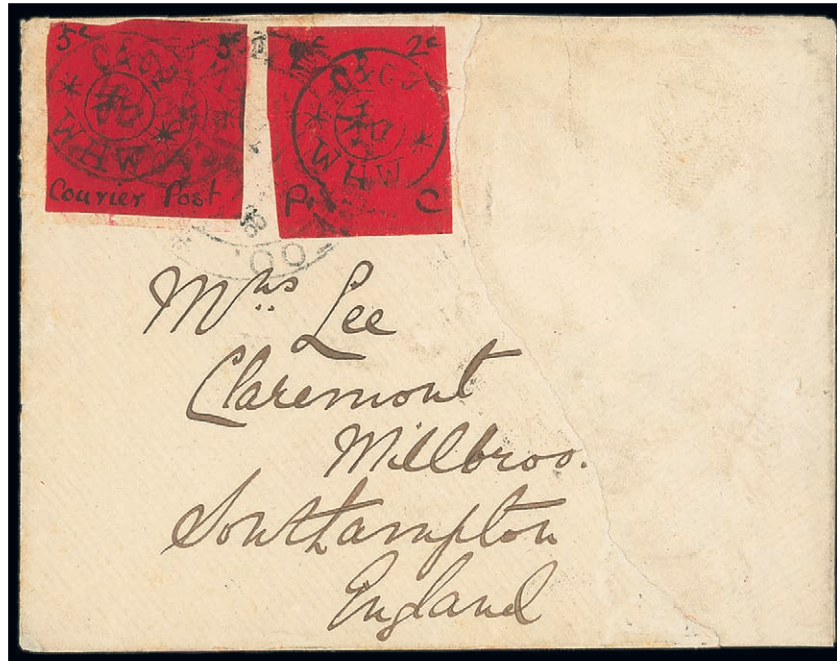 5c
2c
Courier Post
P. C
WHW
WHW
'00
Mrs Lee
Claremont
Millbroo.
Southampton
England